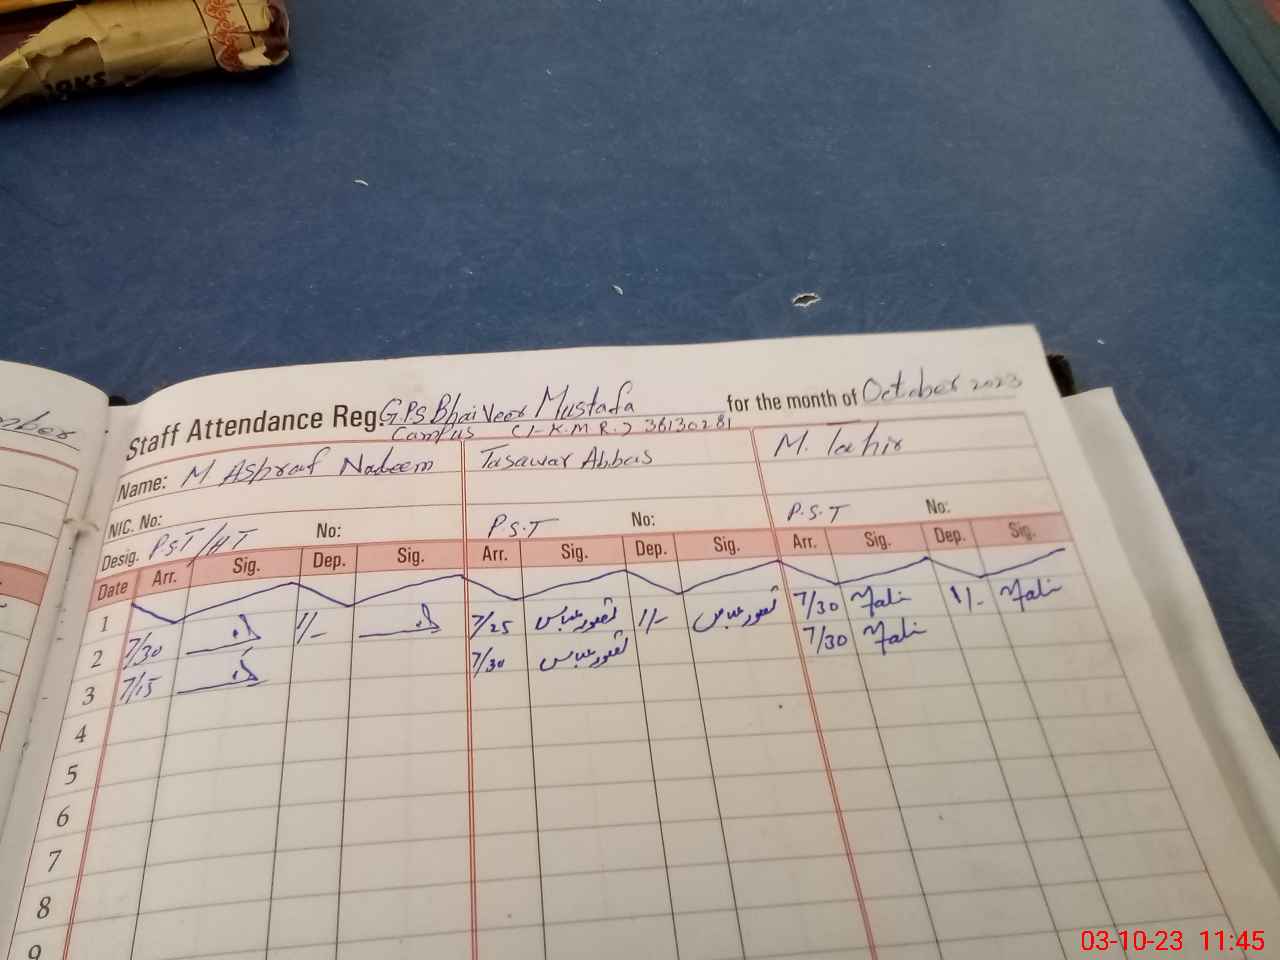 ooks
ober
Staff Attendance Reg. G.P.S Bhai Veer Mustafa for the month of October 2023
Campus (L.K.M.R.) 36130281
Name: M Ashraf Nadeem Tasawar Abbas M. Tahir
NIC. No:
Desig. P.S.T/HT No: P.S.T No: P.S.T No:
Date Arr. Sig. Dep. Sig. Arr. Sig. Dep. Sig. Arr. Sig. Dep. Sig.
1
2 7/30 1/- 7/25 تصور عباس 1/- تصور عباس 7/30 1/-
3 7/15 7/30 تصور عباس 7/30
4
5
6
7
8
9
03-10-23 11:45